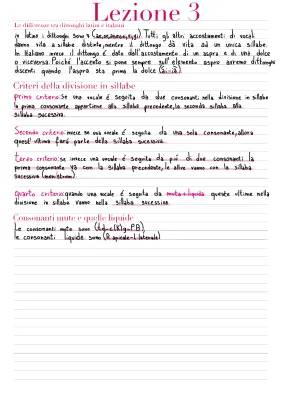 Lezione 3
Le differenze tra dittonghi latini e italiani
in latino i dittonghi sono Tutti gli altri accostamenti di vocali
danno vita a sillabe distinte, mentre il dittongo dà vita ad un unica sillaba.
In Italiano invece il dittongo è dato dall'accostamento di un aspra e di una dolce
o viceversa. Poiché l'accento si pone sempre sull'elemento aspro avremo dittonghi
discenti quando l'aspra sta prima la dolce
Criteri della divisione in sillabe
primo criterio: Se una vocale è seguita da due consonanti, nella divisione in sillabe
la prima consonante appartiene alla sillaba precedente, la seconda sillaba alla
sillaba sucessiva.
Secondo criterio: invece se una vocale è seguita da una sola consonante, allora
quest'ultima farà parte della sillaba sucessiva.
terzo criterio: se invece una vocale è seguita da più di due consonanti la
prima consonante va con la sillaba precedente, le altre vanno con la sillaba
sucessiva
quarto criterio: quando una vocale è seguita da muta+liquida queste ultime nella
divisione in sillabe vanno nella sillaba sucessiva.
Consonanti mute e quelle liquide
Le consonanti mute sono
le consonanti liquide sono (R apicale-L laterale)